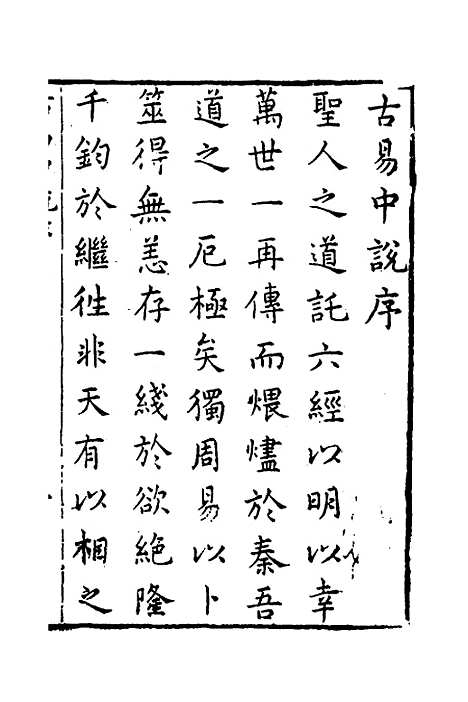 古易中說序
聖人之道託六經以明以幸
萬世一再傳而煨燼於秦吾
道之一厄極矣獨周易以卜
筮得無恙存一綫於欲絶隆
千鈞於繼徃非天有以相之